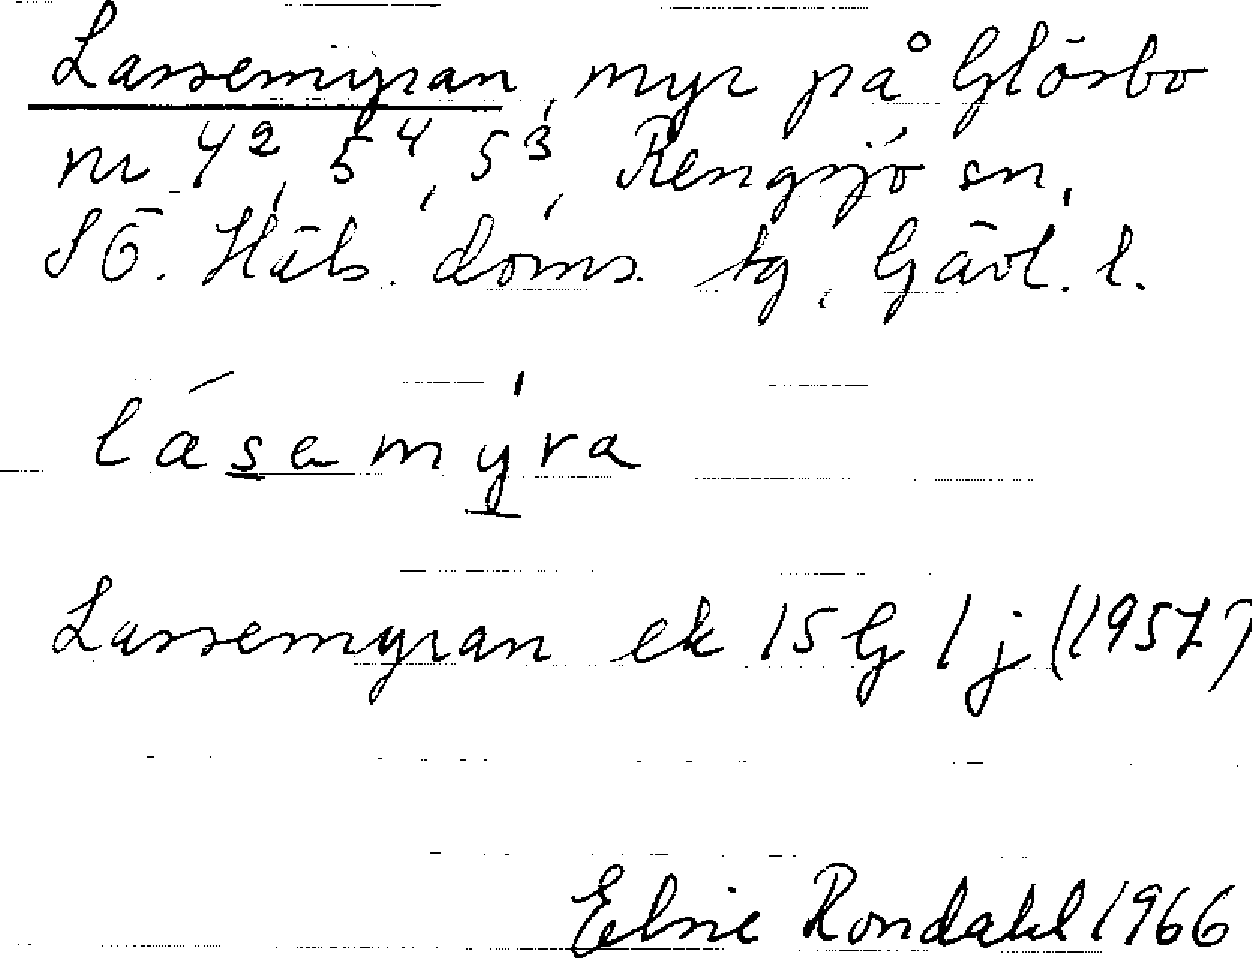 Lassemyran, myr på Glösbo
nr 4², 5⁴, 5³, Rengsjö sn,
SÖ. Häls. doms. tg, Gävl. l.
lásemýra
Lassemyran ek 15 G 1 j (1957)
Elsie Rondahl 1966